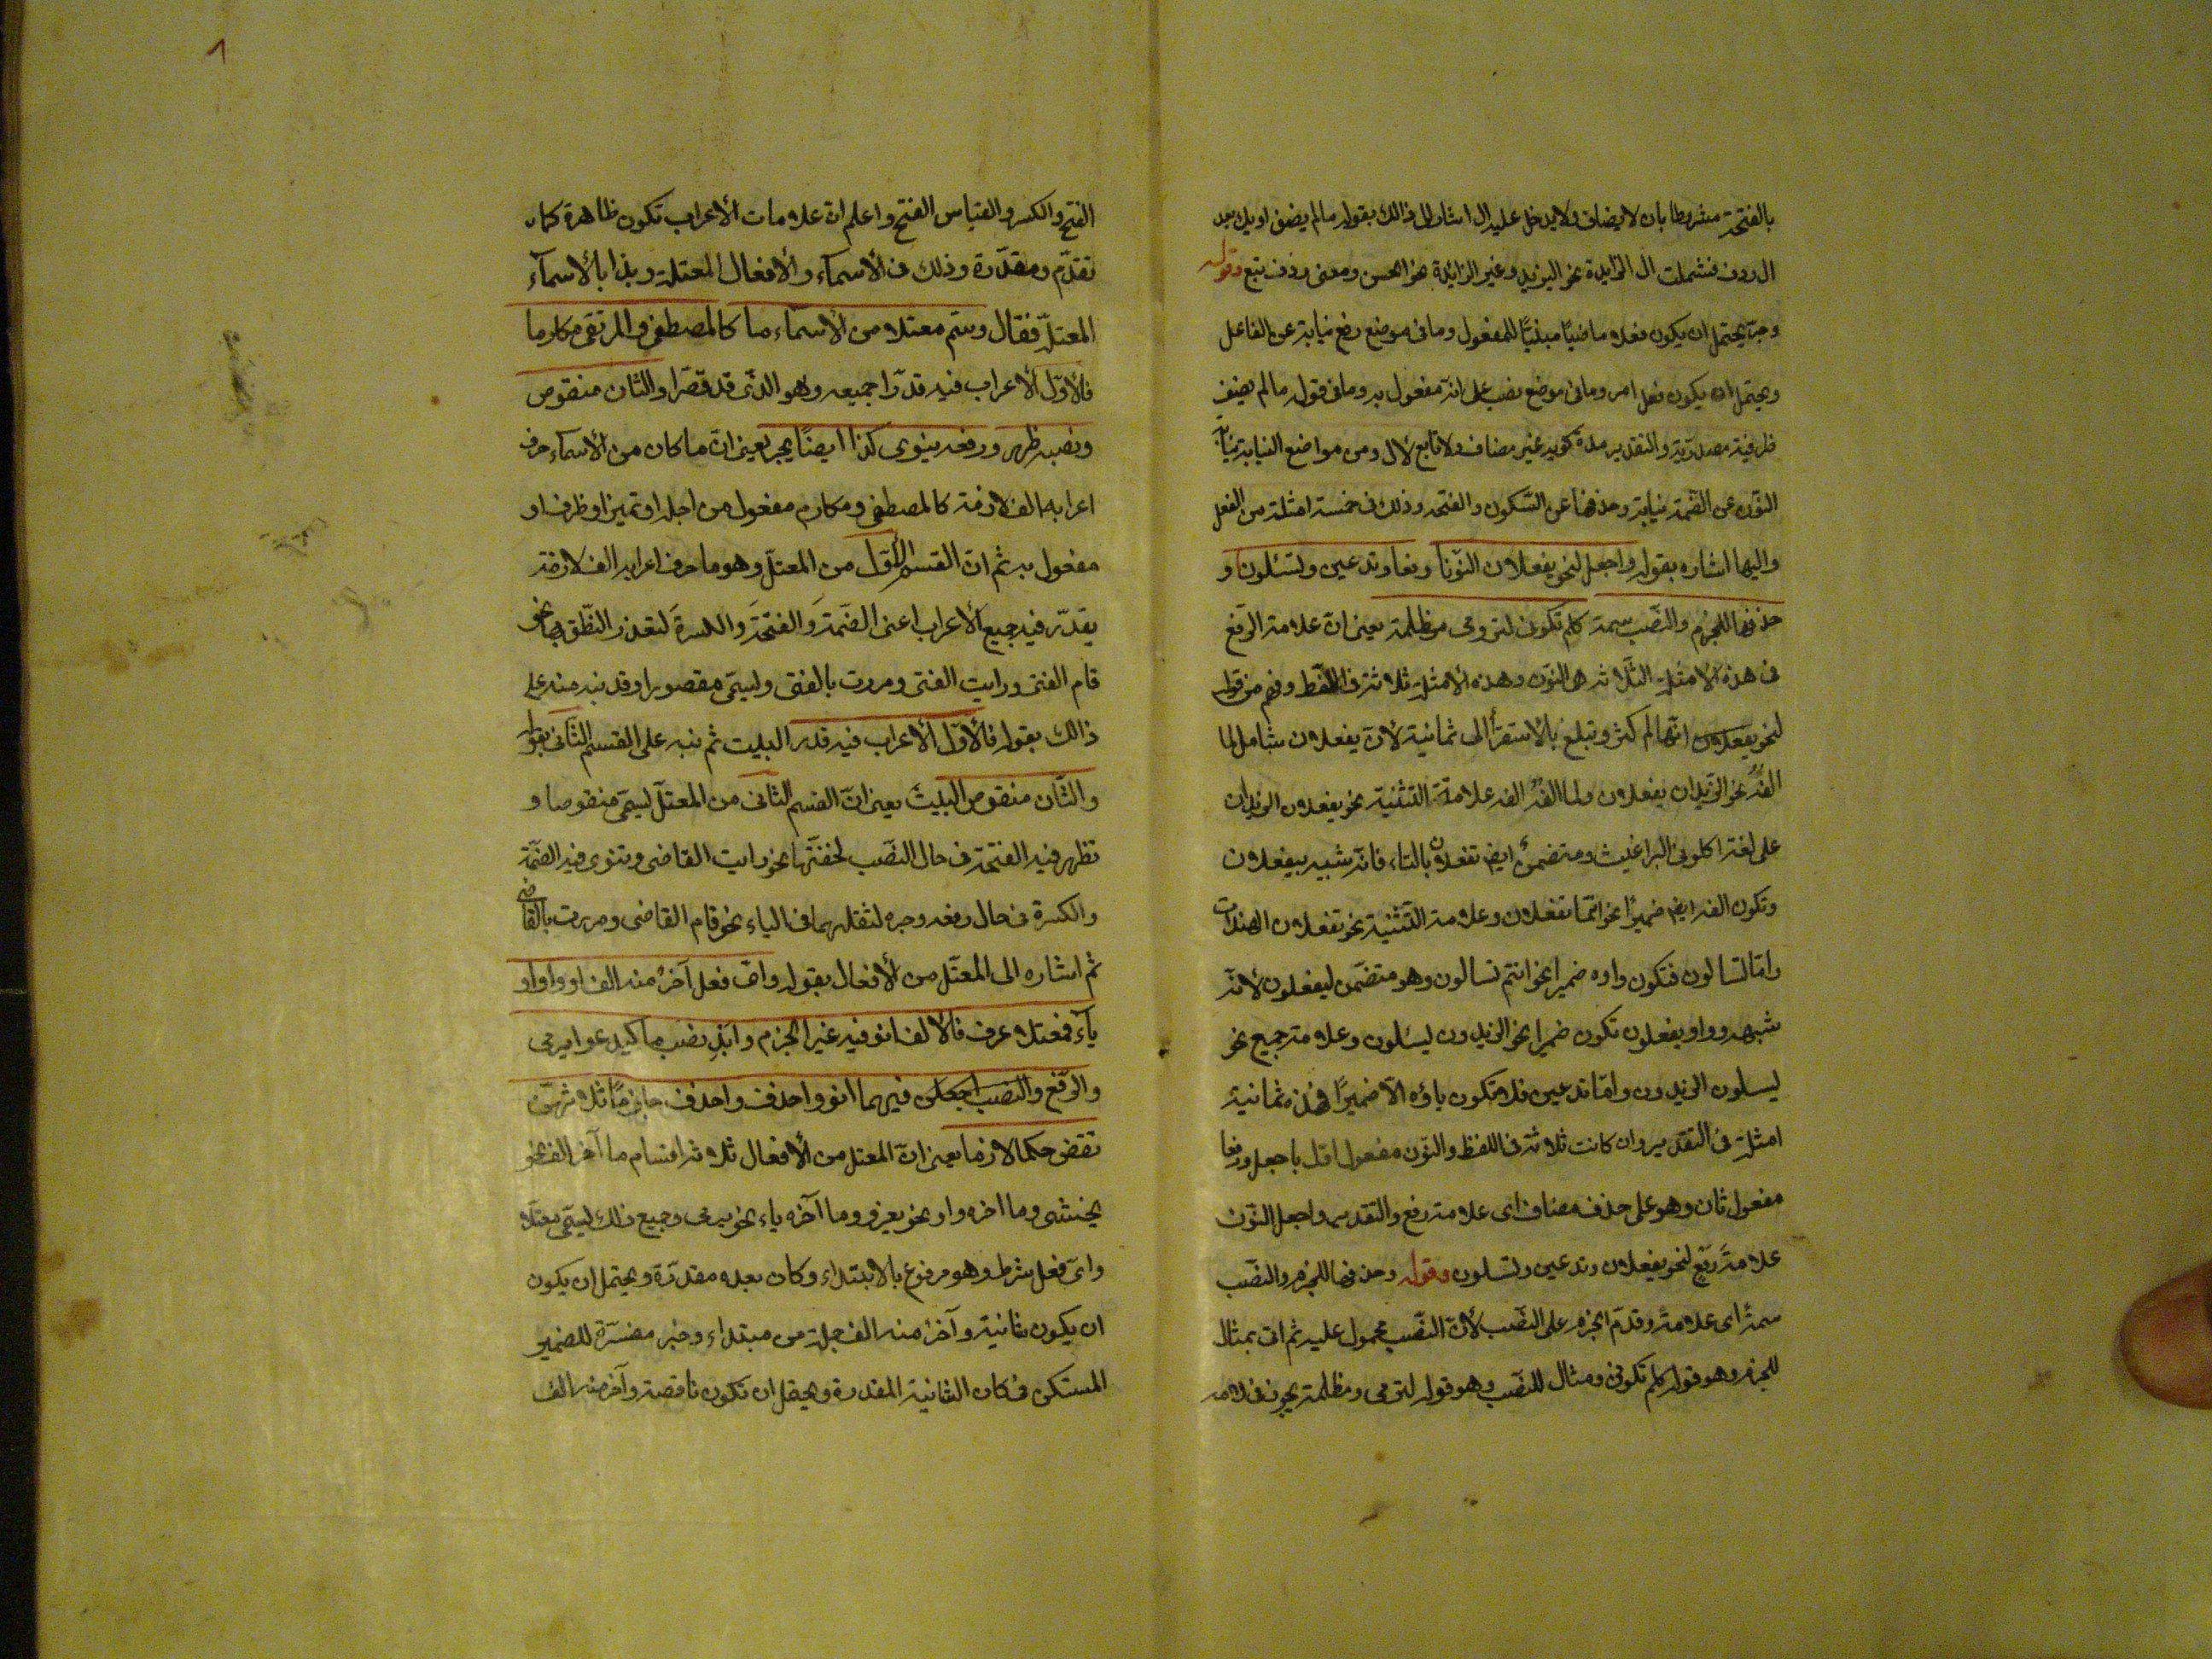 بالفتحة مشروطا بان لا يضاف ولا يدخل عليه ال اشار الى ذالك بقوله ما لم يضف او يك بعد
ال ردف فشملت ال الزايدة نحو اليزيد وغير الزائدة نحو الحسن ومعنى ردف تبع وقوله
وجرّ يحتمل ان يكون فعلا ماضيًا مبنيًّا للمفعول وما فى موضع رفع نيابة عن الفاعل
ويحتمل ان يكون فعل امر وما فى موضع نصب على انّه مفعول به وما فى قوله ما لم يضف
ظرفية مصدريّة والتقدير مدة كونه غير مضاف ولا تابع لال ومن مواضع النيابة نيابة
النّون عن الضّمة نيابة وحذفها عن السّكون والفتحة وذلك فى خمسة امثلة من الفعل
واليها اشاره بقوله واجعل لنحو يفعلان النّونا رفعا وتدعين وتسئلونا و
حذفها للجزم والنّصب سمة كلم تكونى لترومى مظلمة يعنى انّ علامة الرّفع
فى هذه الامثلة الثّلاثه هى النّون وهذه الأمثلة ثلاثة فى اللّفظ وفهم من قوله
لنحو يفعلان انّها لم كثر وتبلغ بالاستقرأ الى ثمانية لانّ يفعلان شامل لما
الفُهُ نحو الزّيدان يفعلان ولما الفُهُ الفه علامة التثنية نحو يفعلان الزيدان
على لغة اكلونى البراغيث ومتضمنٌ ايضٌ تفعلان بالتاء فانّه شبيه بيفعلان
وتكون الفه ايضٌ ضميرًا نحو انتما تفعلان وعلامة التّثنية نحو تفعلان الهندات
وامّا تسالون فتكون واوه ضميرا نحو انتم تسالون وهو متضمّن ليفعلون لانّه
شبهه وواو يفعلون تكون ضميرا نحو الزيدون يسئلون وعلامة جميع نحو
يسلون الزيدون وامّا تدعين فلا تكون ياؤه الّا ضميرًا فهذه ثمانية
امثلة فى التقدير وان كانت ثلاثة فى اللفظ والنّون مفعول اوّل باجعل ورفعا
مفعول ثان وهو على حذف مضاف اى علامة رفع والتقدير واجعل النّون
علامةَ رَفْعٍ لنحو يفعلان وتدعين وتسلون وقوله وحذفها للجزم والنصّب
سمة اى علامةً وقدّم الجزم على النصّب لأنّ النصّب محمول عليه ثم اتى بمثال
للجزم وهو قوله كلم تكونى ومثال للنصّب وهو قوله لترومى ومظلمة يجوز فى لامه
٨
الفتح والكسر والقياس الفتح واعلم انّ علامات الأعراب تكون ظاهرة كما
تقدّم ومقدّرة وذلك فى الأسماء والأفعال المعتلة وبدا بالأسمآء
المعتلّ فقال وسَمّ معتلا من الأسماء ما كالمصطفى والمرتقى مكارما
فالأوّل الأعراب فيه قدّرا جميعه وهو الذّى قد قصّرا والثّان منقوص
ونصبه ظهر ورفعه ينوى كذا ايضًا يجر يعنى انّ ما كان من الأسماء حرف
اعرابه الف لازمة كالمصطفى ومكارم مفعول من اجله او تميز او ظرف او
مفعول به ثم انّ القسم الأوّل من المعتلّ وهو ما حرف اعرابه الف لازمة
يقدّر فيه جميع الأعراب اعنى الضّمةَ والفتحةَ والكسرةَ لتعذر النّطق بها نحو
قام الفتى ورايت الفتى ومررت بالفتى ويسمّى مقصورا وقد نبه منه على
ذالك بقوله فالأوّل الأعراب فيه قدر البيت ثم نبه على القسم الثّانى بقوله
والثّان منقوص البيت يعنى انّ القسم الثانى من المعتلّ يسمّى منقوصا و
تظهر فيه الفتحة فى حال النصّب لخفتّها نحو رايت القاضى وتنوى فيه الضمّة
والكسرة فى حال رفعه وجره لثقلهما فى الياء نحو قام القاضى ومررت بالقاضى
ثم اشاره الى المعتّل من الأفعال بقوله واىّ فعل آخرٌ منه الف او واو او
يآء فمعتلا عرف فالالف انو فيه غير الجزم وابْدِ نصب ما كيدعو ايرمى
والرّفع والنصب اجعلن فيهما انو واحذف واحذف جازمًا ثلاثهنّ
تقض حكما لازما يعنى انّ المعتل من الأفعال ثلاثه اقسام ما آخره الف نحو
يخشى وما اخره واو نحو يغزو وما آخره ياء نحو يرمى وجميع ذلك يسمّى معتلا
واىّ فعل شرط وهو مرفوع بالابتداء وكان بعده مقدّرة ويحتمل ان يكون
ان يكون شانية وآخرٌ منه الف جملة من مبتداء وخبر مفسّرة للضمير
المستكن فى كان الشانية المقدرة ويحتمل ان تكون ناقصة وآخر منه الف